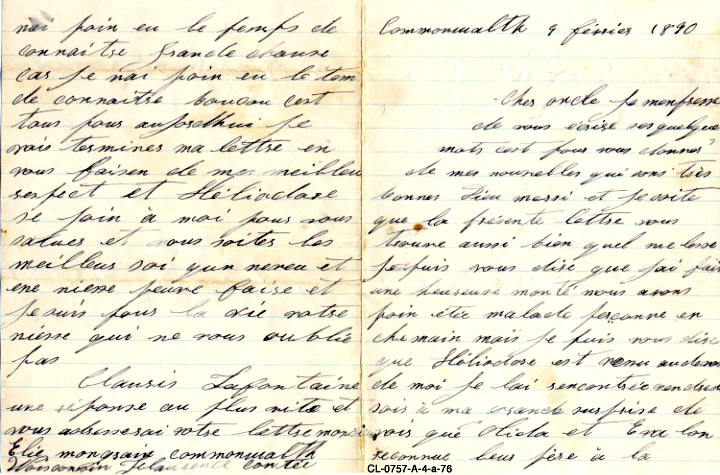 Commonwalth 9 février 1890
Cher oncle je menpresse
de vous écrire ses quelque
mots cest pour vous donner
de mes nouvelles qui sont très
bonnes Dieu merci et je soite
que la présente lettre vous
trouve aussi bien quel me lesse
je puis vous dire que jai fait
une heureuse monté nous avons
poin étée malade personne en
chemain mais je puis vous dire
que Héliodore est venu audevan
de moi je lai rencontrée vendredi
soir à ma grande surprise de
vois que et Eva lon
reconnue leur père à la
nai poin eu le temps de
connaitre grande chause
cas je nai poin eu le tem
de connaitre baucou cest
tous pour aujosdhui je
vais termines ma lettre en
vous faisen de mes meilleu
respect et Héliodore
se join a moi pour vous
salues et vous soites les
meilleur soi qun neveu et
ene nièsse peuve faise et
je suis pour la vie votre
nièsse qui ne vous oublie
pas
Clausis Lafontaine
une réponse au plus vite et
vous adresserai votre lettre
Elie mongrain commonwalth
Wisconsin contée
CL-0757-A-4-a-76